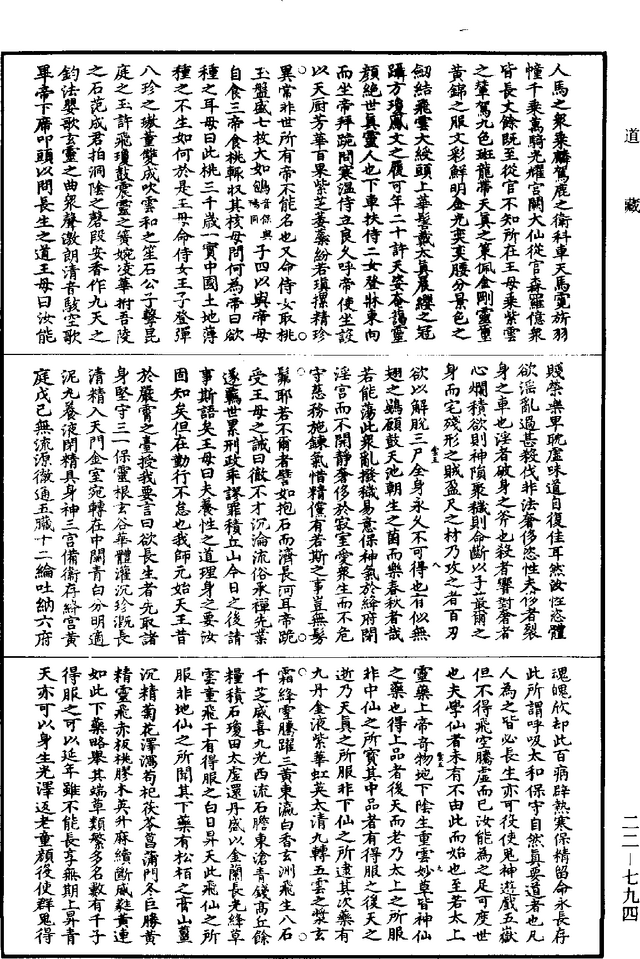 道藏
人馬之眾乘麟駕鹿之衞科車天馬霓旌羽
幢千乘萬騎光耀宮闕大仙從官森羅億眾
皆長丈餘既至從官不知所在王母乘紫雲
之輦駕九色斑龍帶天真之策佩金剛靈璽
黃錦之服文彩鮮明金光奕奕腰分景色之
劒結飛雲大綬頭上華髻戴太真晨纓之冠
躡方瓊鳳文之履可年二十許天姿奄藹靈
顏絕世真靈人也下車扶侍二女登牀東向
而坐帝拜跪問寒溫侍立良久呼帝使坐設
以天厨芳華百果紫芝萎蘂紛若瑱摞精珍
異常非世所有帝不能名也又命侍女取桃
玉盤盛七枚大如鴇音保與鴇同子四以與帝母
自食三帝食桃輒収其核母問何為帝曰欲
種之耳母曰此桃三千歲一實中國土地薄
種之不生如何於是王母命侍女王子登彈
八珍之璈董雙成吹雲和之笙石公子擊昆
庭之玉許飛瓊鼓震靈之簧婉凌華拊吾陵
之石范成君拍洞陰之磬段安香作九天之
鈞法嬰歌玄靈之曲眾聲激朗清音駭空歌
畢帝下席叩頭以問長生之道王母曰汝能
賤榮樂卑耽虛味道自復佳耳然汝性恣體
欲淫亂過甚殺伐非法奢侈恣性夫侈者裂
身之車也淫者破身之斧也殺者響對奢者
心爛積欲則神隕聚穢則命斷以子蕞爾之
身而宅殘形之賊盈尺之材乃攻之者百刃
欲以解脫三尸全身永久不可得也有似無
翅之鷃願鼓天池朝生之菌而樂春秋者哉
若能蕩此衆亂撥穢易意保神氣於絳府閉
淫宮而不開靜奢侈於寂室愛衆生而不危
守慈務施鍊氣惜精儻有若斯之事豈無髣
髴耶若不爾者譬如抱石而濟長河耳帝跪
受王母之誡曰徹不才沉淪流俗承禪先業
遂羈世累刑政乖謬罪積丘山今日之後請
事斯語矣王母曰夫養性之道理身之要汝
固知矣但在勤行不怠也我師元始天王昔
於嚴霄之臺授我要言曰欲長生者先取諸
身堅守三一保靈根玄谷華體灌沉珍溉長
清精入天門金室宛轉在中關青白分明適
泥九養液閉精具身神三宮備衞存絳宮黃
庭戊己無流源徹通五臟十二綸吐納六府
魂魄欣却此百病辟熱寒保精留命永長存
此所謂呼吸太和保守自然真要道者也凡
人為之皆必長生亦可役使鬼神遊戲五嶽
但不得飛空騰虛而已汝能為之足可度世
也夫學仙者未有不由此而始也至若太上
靈藥上帝奇物地下陰生重雲妙草皆神仙
之藥也得上品者後天而老乃太上之所服
非中仙之所寶其中品者有得服之後天之
逝乃天真之所服非下仙之所逮其次藥有
九丹金液紫華虹英太清九轉五雲之漿玄
霜絳雪騰躍三黃東瀛白香玄洲飛生八石
千芝威喜九光西流石膽東滄青錢高丘餘
糧積石瓊田太虛還丹盛以金蘭長光絳草
雲童飛千有得服之白日昇天此飛仙之所
服非地仙之所聞其下藥有松栢之膏山薑
沉精菊花澤瀉苟杞茯苓菖蒲門冬巨勝黃
精靈飛赤板桃膠木英升麻續斷威蕤黃連
如此下藥略舉其端草類繁多名數有千子
得服之可以延年雖不能長享無期上昇青
天亦可以身生光澤返老童顏役使群鬼得
二二—七九四